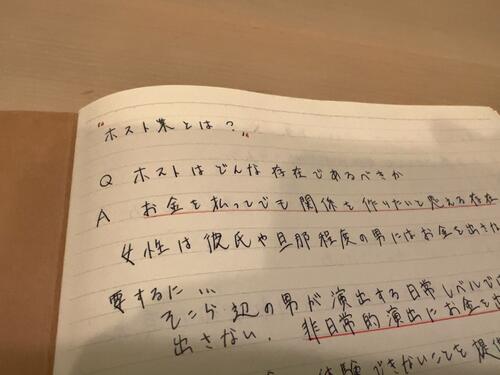 "ホスト業とは?"
Q ホストはどんな存在であるべきか
A お金を払ってでも関係を作りたいと思える存在
女性は彼氏や旦那程度の男にはお金を出さない
要するに...
そこら辺の男が演出する日常レベルでは
出さない、非日常的演出にお金を
体験できないことを提供